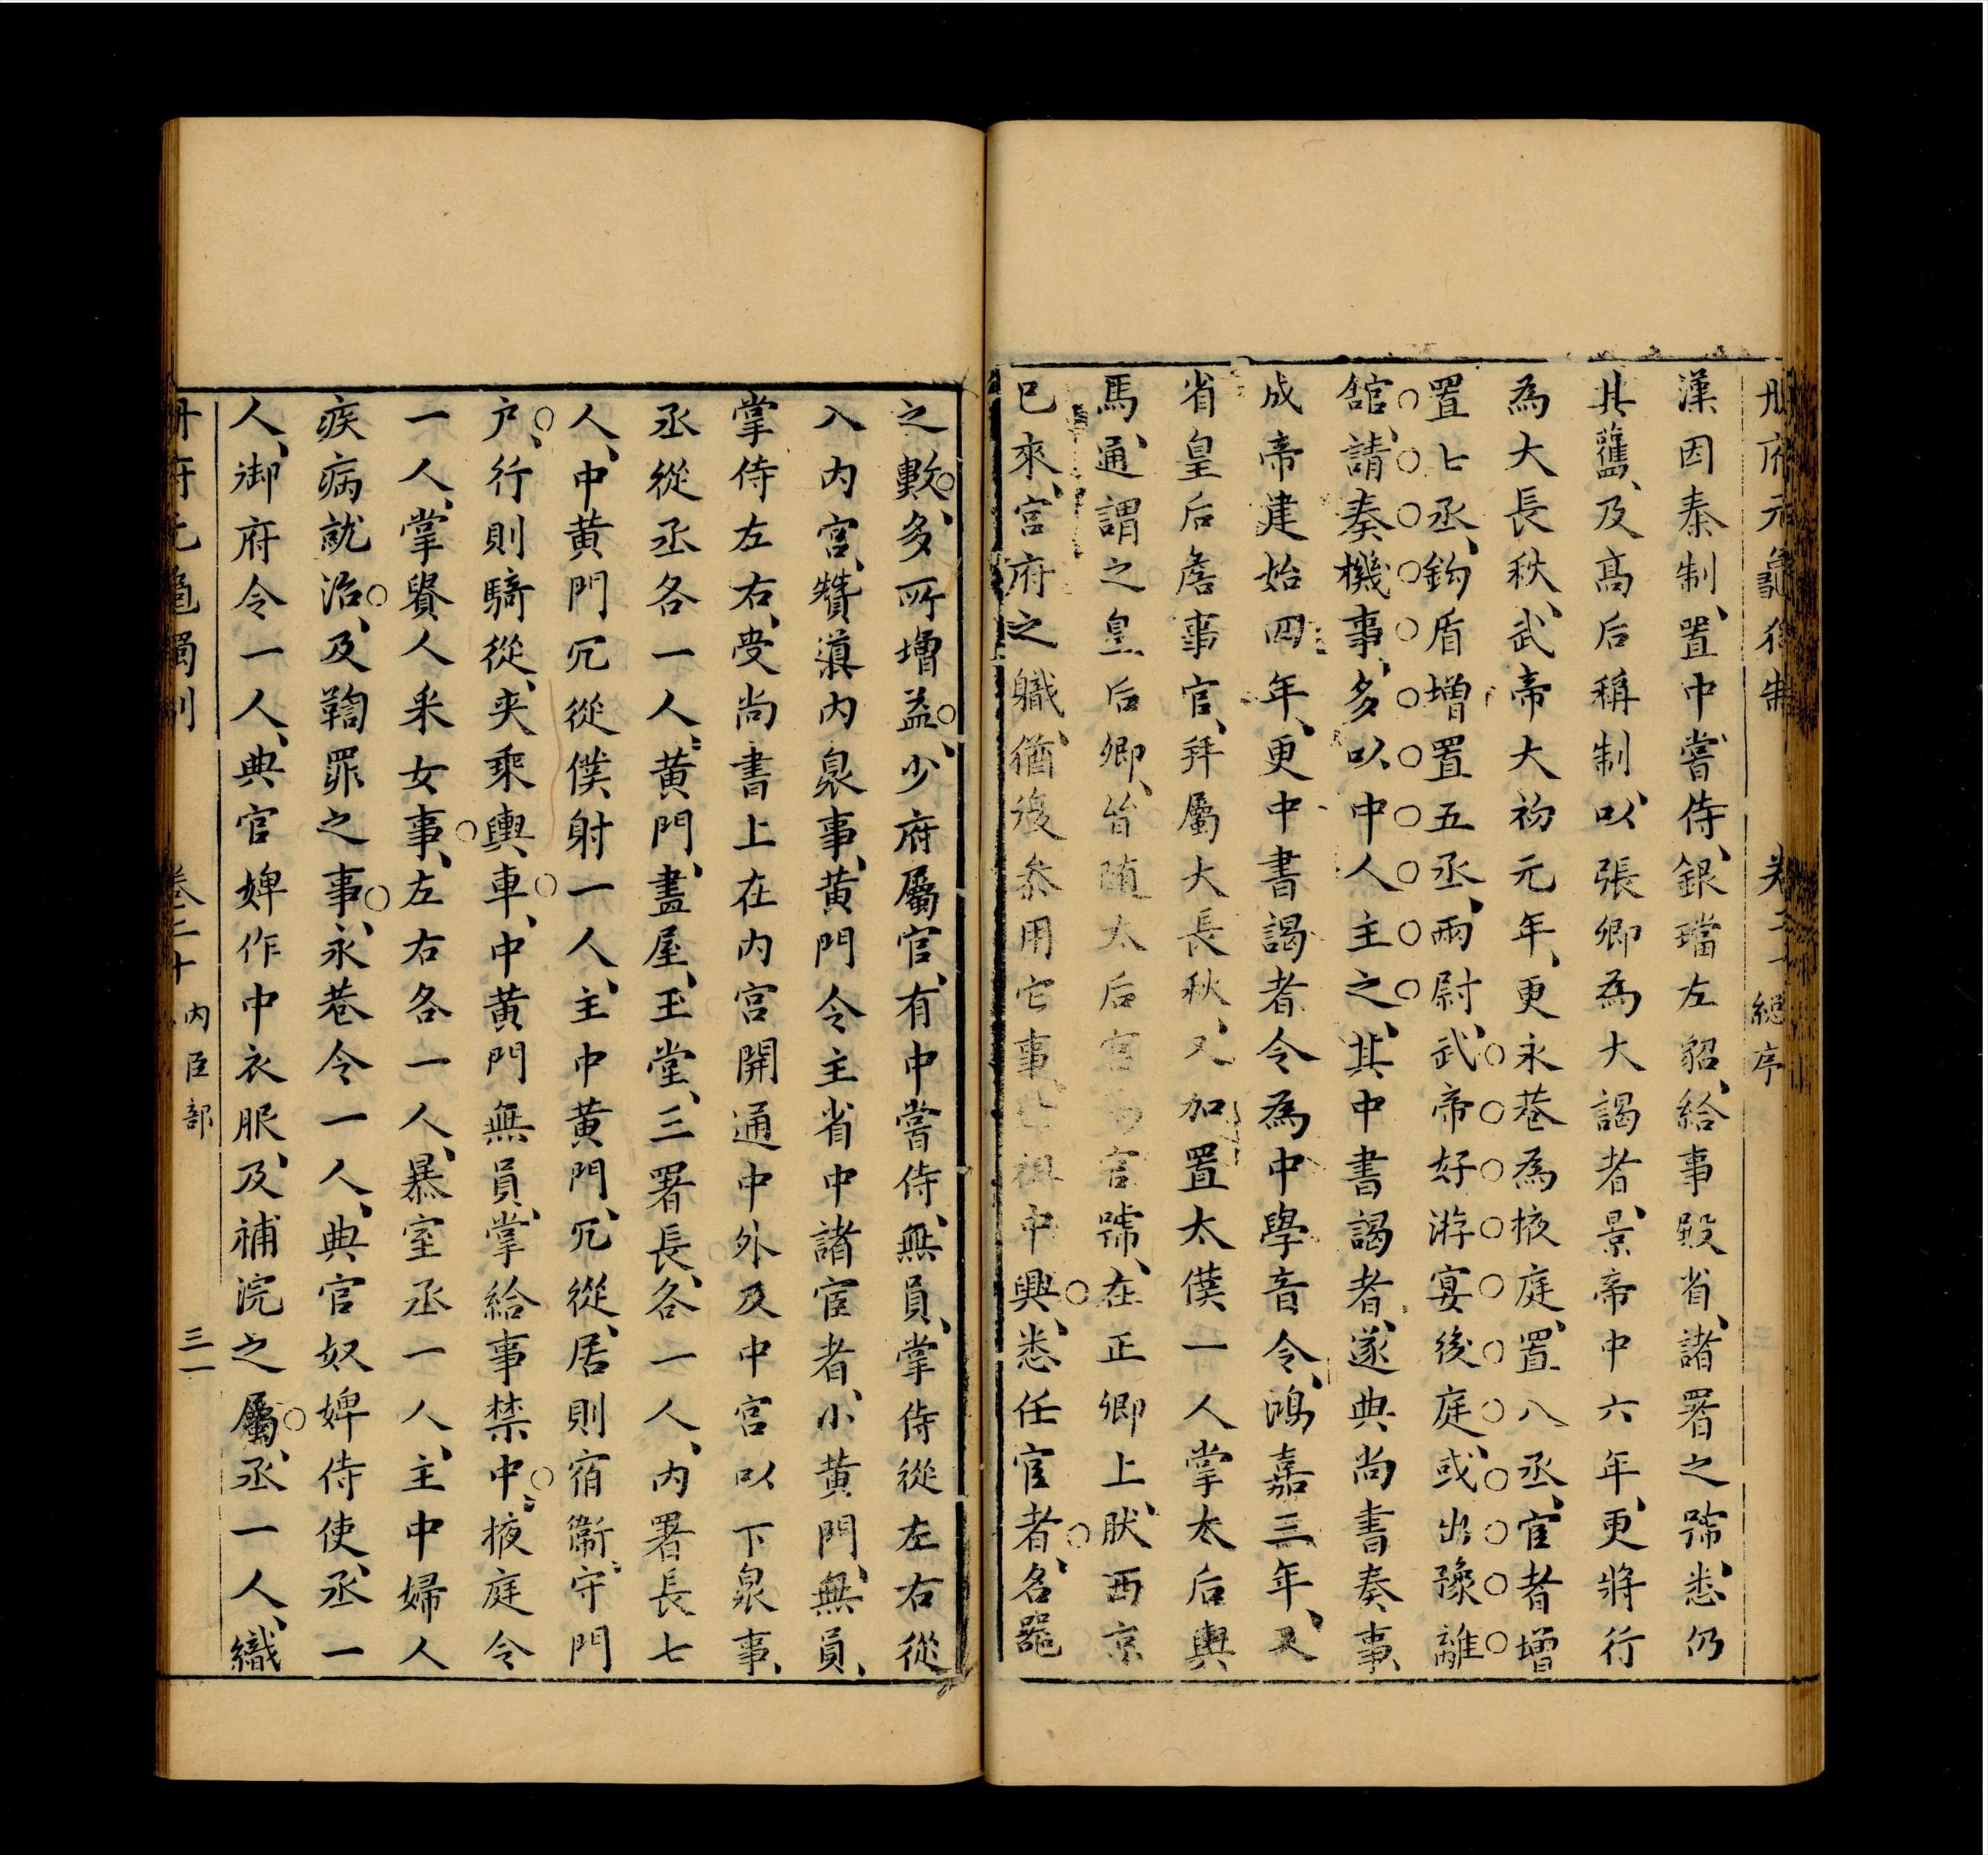 漢因秦制、置中嘗侍、銀璫左貂、給事殿省、諸署之號悉仍
其舊、及高后稱制、以張卿為大謁者、景帝中六年、更將行
為大長秋、武帝太初元年、更永巷為掖庭、置八丞、宦者增
置七丞、鈎盾增置五丞、兩尉、武帝好游宴後庭、或出豫離
舘、請奏機事、多以中人主之、其中書謁者、遂典尚書奏事、
成帝建始四年、更中書謁者令為中學音令、鴻嘉三年、又
省皇后詹事官、拜屬大長秋、又加置太僕一人掌太后輿
馬、通謂之皇后卿、皆随太后宮為官號、在正卿上、肰西京
已來、宮府之職、猶復叅用它事、祖中興、悉任宦者、名器
之數、多所增益、少府屬官、有中嘗侍、無員、掌侍從左右從
入内宮、贊導内衆事、黃門令主省中諸宦者、小黃門、無員、
掌侍左右、受尚書上在内宮開通中外及中宮以下衆事、
丞從丞各一人、黃門、畫屋、玉堂、三署長、各一人、内署長七
人、中黃門冗從僕射一人、主中黃門、冗從、居則宿衞、守門
户、行則騎從、夾乘輿車、中黃門無員、掌給事禁中、掖庭令
一人、掌㬪人采女事、左右各一人、暴室丞一人、主中婦人
疾病就治、及鞫罪之事、永巷令一人、典官奴婢侍使、丞一
人、御府令一人、典官婢作中衣服、及補浣之屬、丞一人、織
卷二十 内臣部 三一